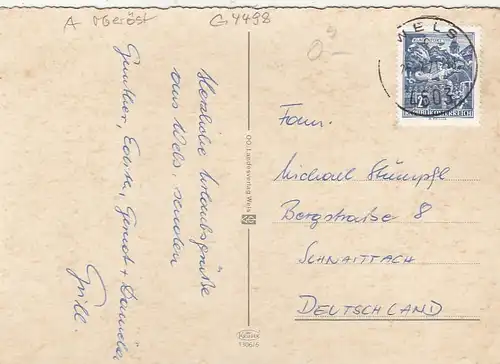 A Oberöst
G 4498
Herzliche Urlaubsgrüße
aus Wels, senden
Günther, Edeltr., Gernot + Daniela
Grill.
OÖ. Landesverlag Wels
WELS
4603
REPUBLIK ÖSTERREICH
Fam.
Michael Stümpfl
Bergstraße 8
SCHNAITTACH
DEUTSCHLAND